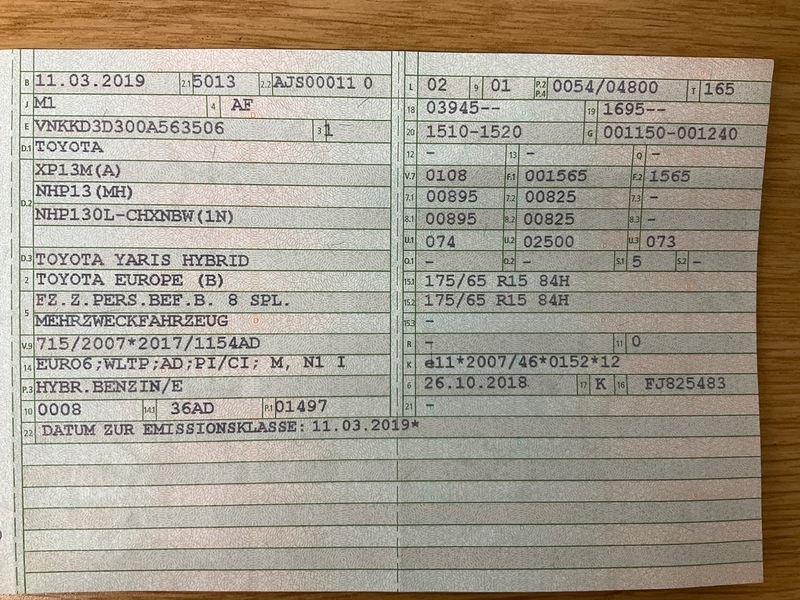 B 11.03.2019 2.1 5013 2.2 AJS00011 0
J M1 4 AF
E VNKKD3D300A563506 3 1
D.1 TOYOTA
XP13M(A)
D.2 NHP13(MH)
NHP130L-CHXNBW(1N)
D.3 TOYOTA YARIS HYBRID
2 TOYOTA EUROPE (B)
5 FZ.Z.PERS.BEF.B. 8 SPL.
MEHRZWECKFAHRZEUG
V.9 715/2007*2017/1154AD
14 EURO6;WLTP;AD;PI/CI; M, N1 I
P.3 HYBR.BENZIN/E
10 0008 14.1 36AD P.1 01497
22 DATUM ZUR EMISSIONSKLASSE: 11.03.2019*
L 02 9 01 P.2 P.4 0054/04800 T 165
18 03945-- 19 1695--
20 1510-1520 G 001150-001240
12 - 13 - Q -
V.7 0108 F.1 001565 F.2 1565
7.1 00895 7.2 00825 7.3 -
8.1 00895 8.2 00825 8.3 -
U.1 074 U.2 02500 U.3 073
O.1 - O.2 - S.1 5 S.2 -
15.1 175/65 R15 84H
15.2 175/65 R15 84H
15.3 -
R - 11 0
K e11*2007/46*0152*12
6 26.10.2018 17 K 16 FJ825483
21 -